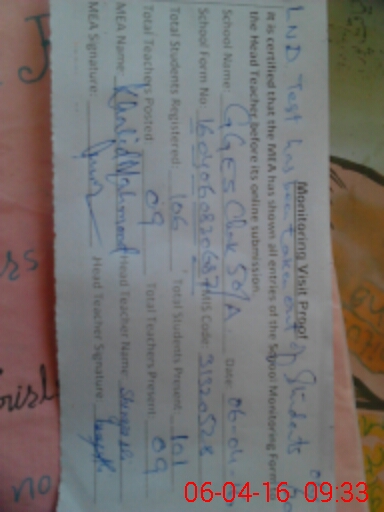 LND Test has been taken out of Students
Monitoring Visit Proof
It is certified that the MEA has shown all entries of the School Monitoring Form to
the Head Teacher before its online submission.
School Name: GGES Chak 50/A Date: 06-04-
School Form No: MIS Code: 31320528
Total Students Registered: 106 Total Students Present 101
Total Teachers Posted 09 Total Teachers Present 09
MEA Name: Khalid Mahmood Head Teacher Name
MEA Signature: Head Teacher Signature
no
06-04-16 09:33